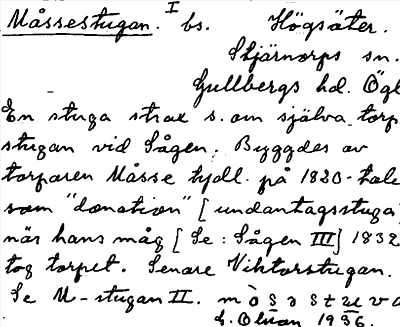 Måssestugan. I bs. Högsäter.
Stjärnorps sn.
Gullbergs hd. Ögl
En stuga strax s. om själva torp
stugan vid Sågen. Byggdes av
torparen Måsse tydl. på 1820-tale
som "donation" [undantagsstuga
när hans måg [Se: Sågen III] 1832
tog torpet. Senare Viktorstugan.
Se M-stugan II.
1936.